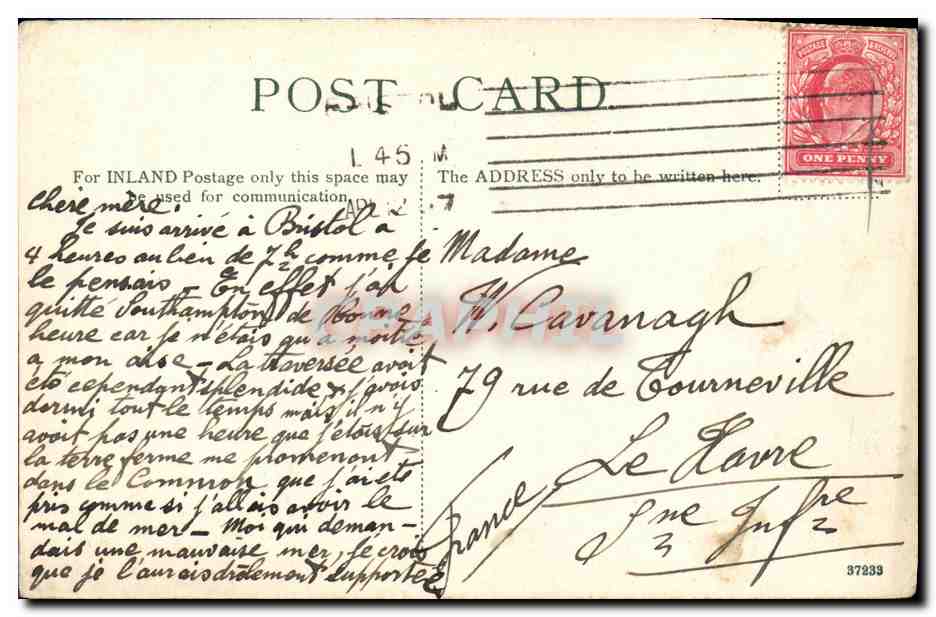 POST CARD
POSTAGE REVENUE
ONE PENNY
1. 45 M
For INLAND Postage only this space may
be used for communication.
The ADDRESS only to be written here.
AP 12 7
Chère mère.
Je suis arrivé à Bristol à
4 heures au lieu de 7h comme je
le pensais — En effet j'ai
quitté Southampton de bonne
heure car je n'étais qu'à moitié
à mon aise — La traversée avait
été cependant splendide & j'avais
dormi tout le temps mais il n'y
avait pas une heure que j'étais sur
la terre ferme me promenant
dans le Common que j'ai été
pris comme si j'allais avoir le
mal de mer — Moi qui deman-
dais une mauvaise mer, je crois
que je l'aurais drôlement supportée
Madame
H. Cavanagh
79 rue de Tourneville
Le Havre
Sne Infre
France
CPAPHIL
37233